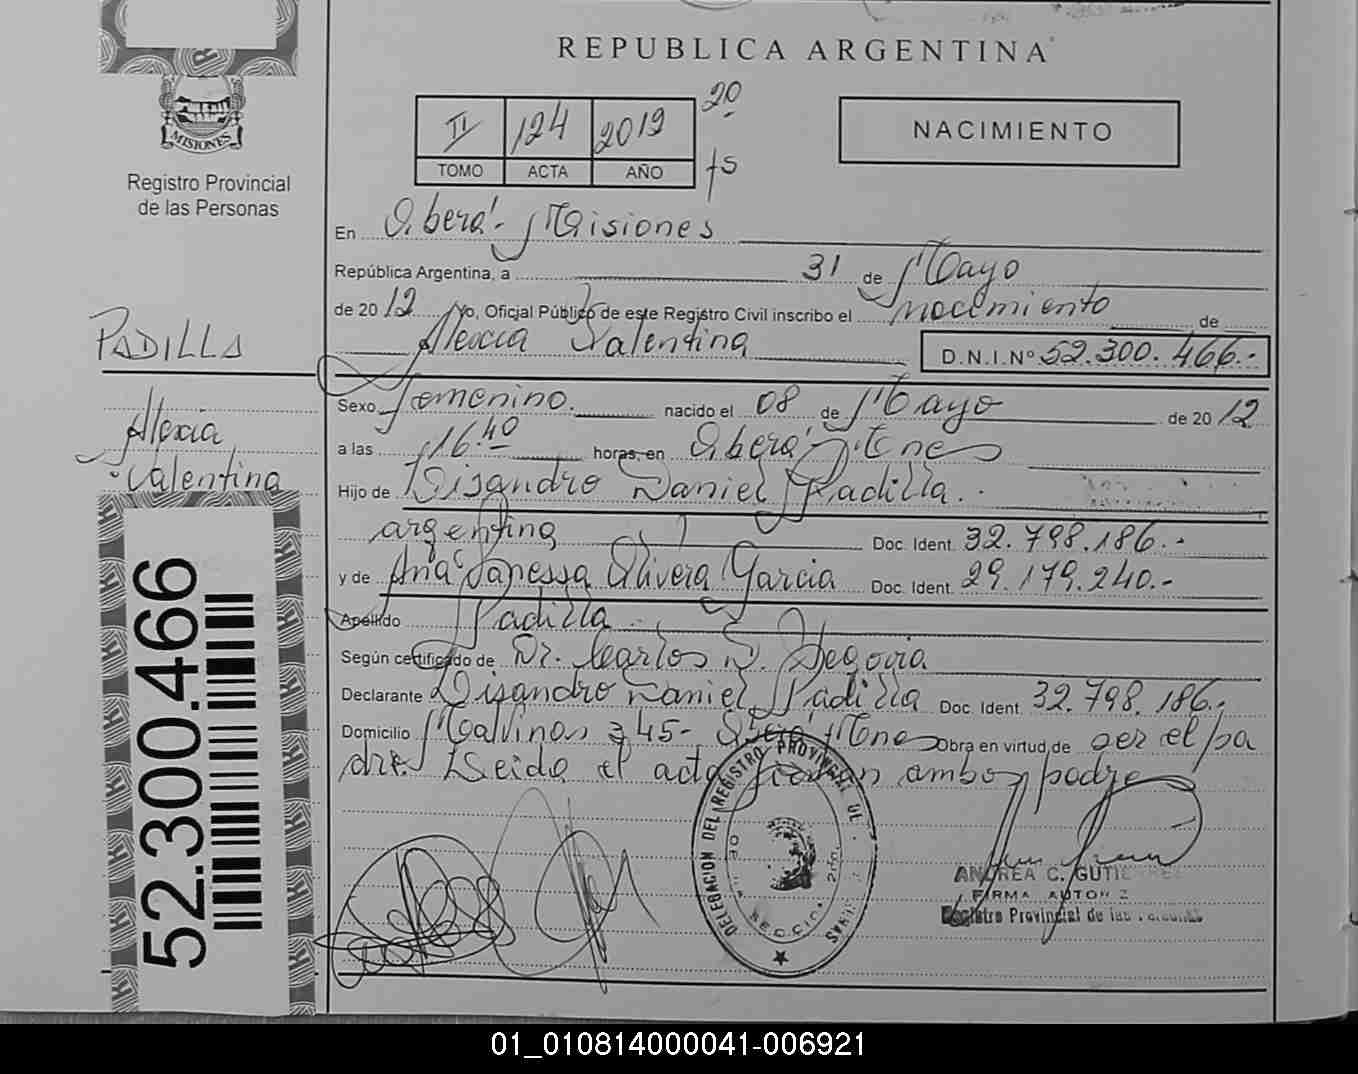 REPUBLICA ARGENTINA
MISIONES
Registro Provincial
de las Personas
II 124 2012 20
TOMO ACTA AÑO fs
NACIMIENTO
En Oberá - Misiones
República Argentina, a 31 de Mayo
de 2012 Yo, Oficial Público de este Registro Civil inscribo el nacimiento de
Alexia Valentina D.N.I.Nº 52.300.466.-
PADILLA
Alexia
Valentina
52.300.466
Sexo Femenino. nacido el 08 de Mayo de 2012
a las 16.40 horas, en Oberá Mnes
Hijo de Lisandro Daniel Padilla.-
argentina Doc. Ident. 32.798.186.-
y de Ana Vanessa Olivera Garcia Doc. Ident. 29.179.240.-
Apellido Padilla.-
Según certificado de Dr. Carlos D. Segovia
Declarante Lisandro Daniel Padilla Doc. Ident. 32.798.186.-
Domicilio Malvinas 345- Oberá Mnes Obra en virtud de ser el pa
dre. Leida el acta firman ambos padres
DELEGACION DEL REGISTRO PROVINCIAL DE
ANDREA C. GUTIERREZ
FIRMA AUTORIZ
Registro Provincial de las Personas
01_010814000041-006921